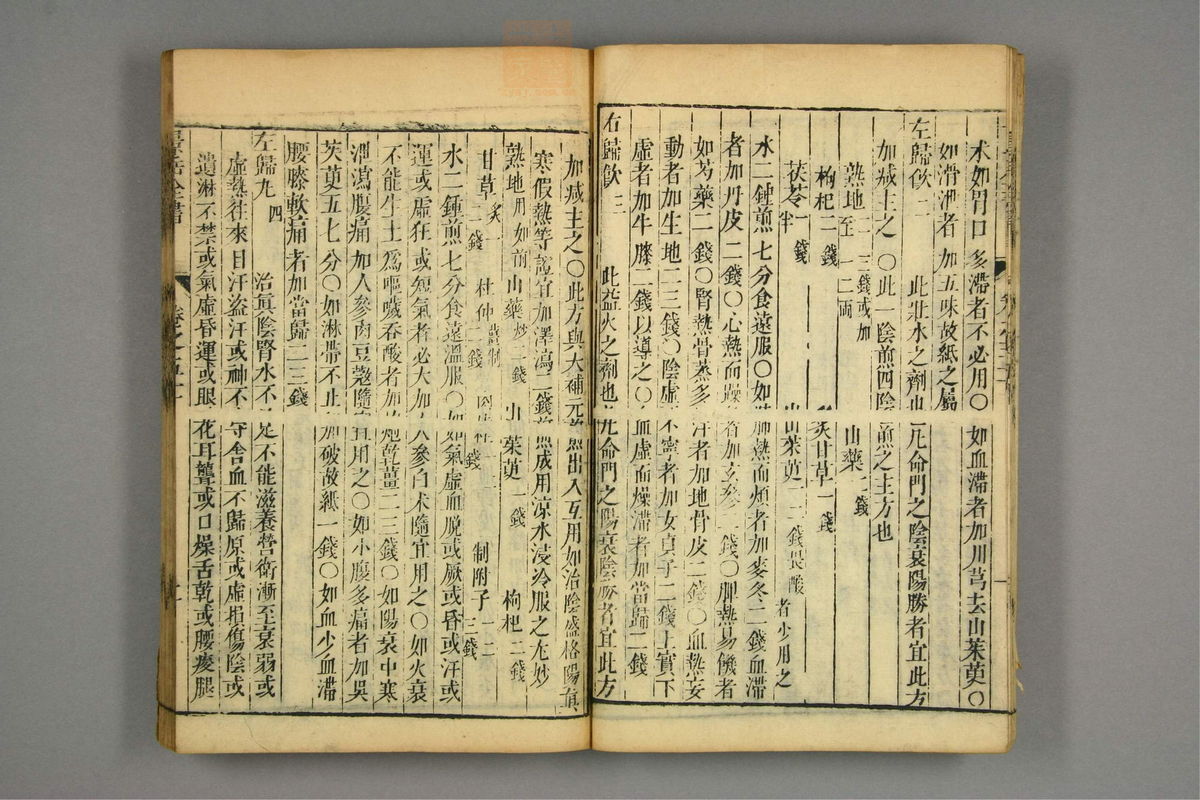 术如胃口多滯者不必用〇如血滯者加川芎去山茱萸〇
如滑泄者加五味故紙之屬
左歸飲二　此壯水之劑也凡命門之陰衰陽勝者宜此方
加減主之〇此一陰煎四陰煎之主方也
熟地二三錢或加至一二兩　山藥二錢
枸杞二錢　炙甘草一錢
茯苓一錢半　山茱萸一二錢畏酸者少用之
水二鍾煎七分食遠服〇如肺熱而煩者加麥冬二錢血滯
者加丹皮二錢〇心熱而躁者加玄參二錢〇脾熱易饑者
加芍藥二錢〇腎熱骨蒸多汗者加地骨皮二錢〇血熱妄
動者加生地二三錢〇陰虛不寧者加女貞子二錢上實下
虛者加牛膝二錢以導之〇血虛而燥滯者加當歸二錢
右歸飲三　此益火之劑也凡命門之陽衰陰勝者宜此方
加減主之〇此方與大補元煎出入互用如治陰盛格陽眞
寒假熱等證宜加澤瀉二錢煎成用涼水浸冷服之尤妙
熟地用如前　山藥炒二錢　山茱萸一錢　枸杞二錢
甘草炙一二錢　杜仲薑製二錢　肉桂一二錢　制附子一二三錢
水二鍾煎七分食遠溫服〇如氣虛血脫或厥或昏或汗或
運或虛狂或短氣者必大加人參白术隨宜用之〇如火衰
不能生土爲嘔噦吞酸者加炮乾薑二三錢〇如陽衰中寒
泄瀉腹痛加人參肉豆蔻隨宜用之〇如小腹多痛者加吳
茱萸五七分〇如淋帶不止加破故紙一錢〇如血少血滯
腰膝軟痛者加當歸二三錢
左歸丸四　治眞陰腎水不足不能滋養營衛漸至衰弱或
虛熱往來自汗盜汗或神不守舍血不歸原或虛損傷陰或
遺淋不禁或氣虛昏運或眼花耳聾或口燥舌乾或腰痠腿